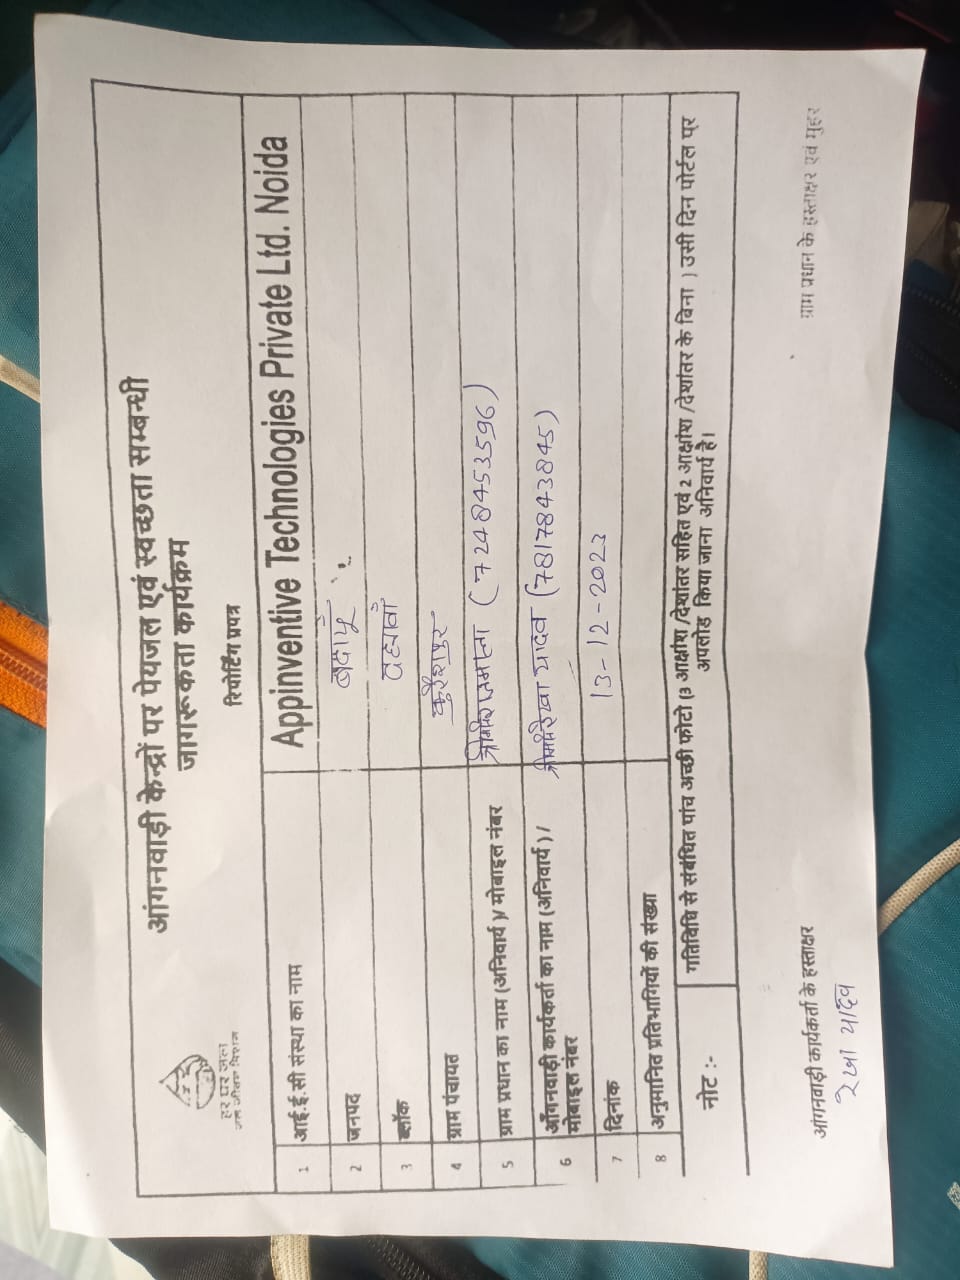 हर घर जल
जल जीवन मिशन
आंगनवाड़ी केन्द्रों पर पेयजल एवं स्वच्छता सम्बन्धी
जागरूकता कार्यक्रम
रिपोर्टिंग प्रपत्र
1 आई.ई.सी संस्था का नाम Appinventive Technologies Private Ltd. Noida
2 जनपद बदायूँ
3 ब्लॉक
4 ग्राम पंचायत
5 ग्राम प्रधान का नाम (अनिवार्य )/ मोबाइल नंबर (7248453596)
6 आँगनवाड़ी कार्यकर्ता का नाम (अनिवार्य ) / रेखा यादव (7817843845)
मोबाइल नंबर
7 दिनांक 13-12-2023
8 अनुमानित प्रतिभागियों की संख्या
नोट :- गतिविधि से संबंधित पांच अच्छी फोटो (3 आक्षांश /देशांतर सहित एवं 2 आक्षांश /देशांतर के बिना ) उसी दिन पोर्टल पर
अपलोड किया जाना अनिवार्य है।
आंगनवाड़ी कार्यकर्ता के हस्ताक्षर ग्राम प्रधान के हस्ताक्षर एवं मुहर
रेखा यादव